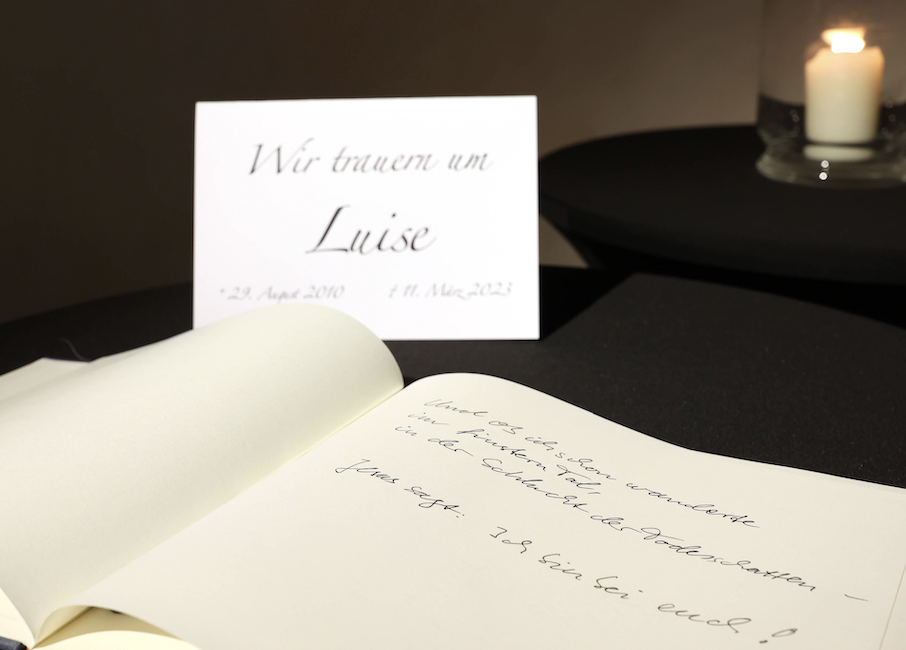 Wir trauern um
Luise
* 29. August 2010 † 11. März 2023
Und ob ich schon wanderte
im finstern Tal,
in der Schlucht der Todesschatten –
Jesus sagt: Ich bin bei euch!